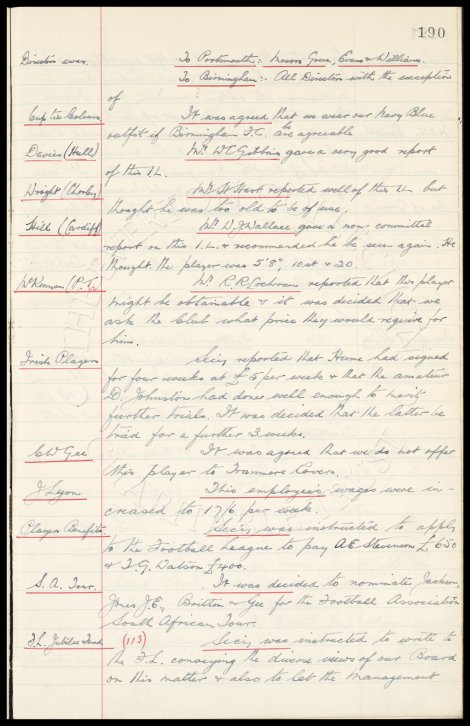 190
Directors away. To Portsmouth: Messrs Green, Evans & Williams.
To Birmingham:- All Directors with the exception
of
Cup tie Colours. It was agreed that we wear our Navy Blue
outfit if Birmingham F.C. are agreeable
Davies (Hull) Mr. W C Gibbins gave a very good report
of this I.L.
Wright (Chorley) Mr. St Hart reported well of this but
thought he was too old to be of use.
Hill (Cardiff) Mr. D. J Wallace gave a non-committal
report on this I.L. & recommended he be seen again. He
thought the player was 5'8", 10st & 20.
(P.T.) Mr. R. R. Cochran reported that this player
might be obtainable & it was decided that we
ask the Club what price they would require for
him.
Irish Players Secy reported that Hume had signed
for four weeks at £5 per week & that the amateur
D. Johnston had done well enough to merit
further trials. It was decided that the latter be
tried for a further 3 weeks.
C W Gee It was agreed that we do not offer
this player to Tranmere Rovers.
J Lyon This employee's wages were in-
creased to 17/6 per week.
Players Benefits Secy was instructed to apply
to the Football League to pay A.E. Stevenson £650
& T. G. Watson £400.
S. A. Tour. It was decided to nominate Jackson,
Jones J.E., Britton & Gee for the Football Association
South African Tour.
F.L. Jubilee Fund (113) Secy was instructed to write to
the F.L. conveying the diverse views of our Board
on this matter & also to let the Management